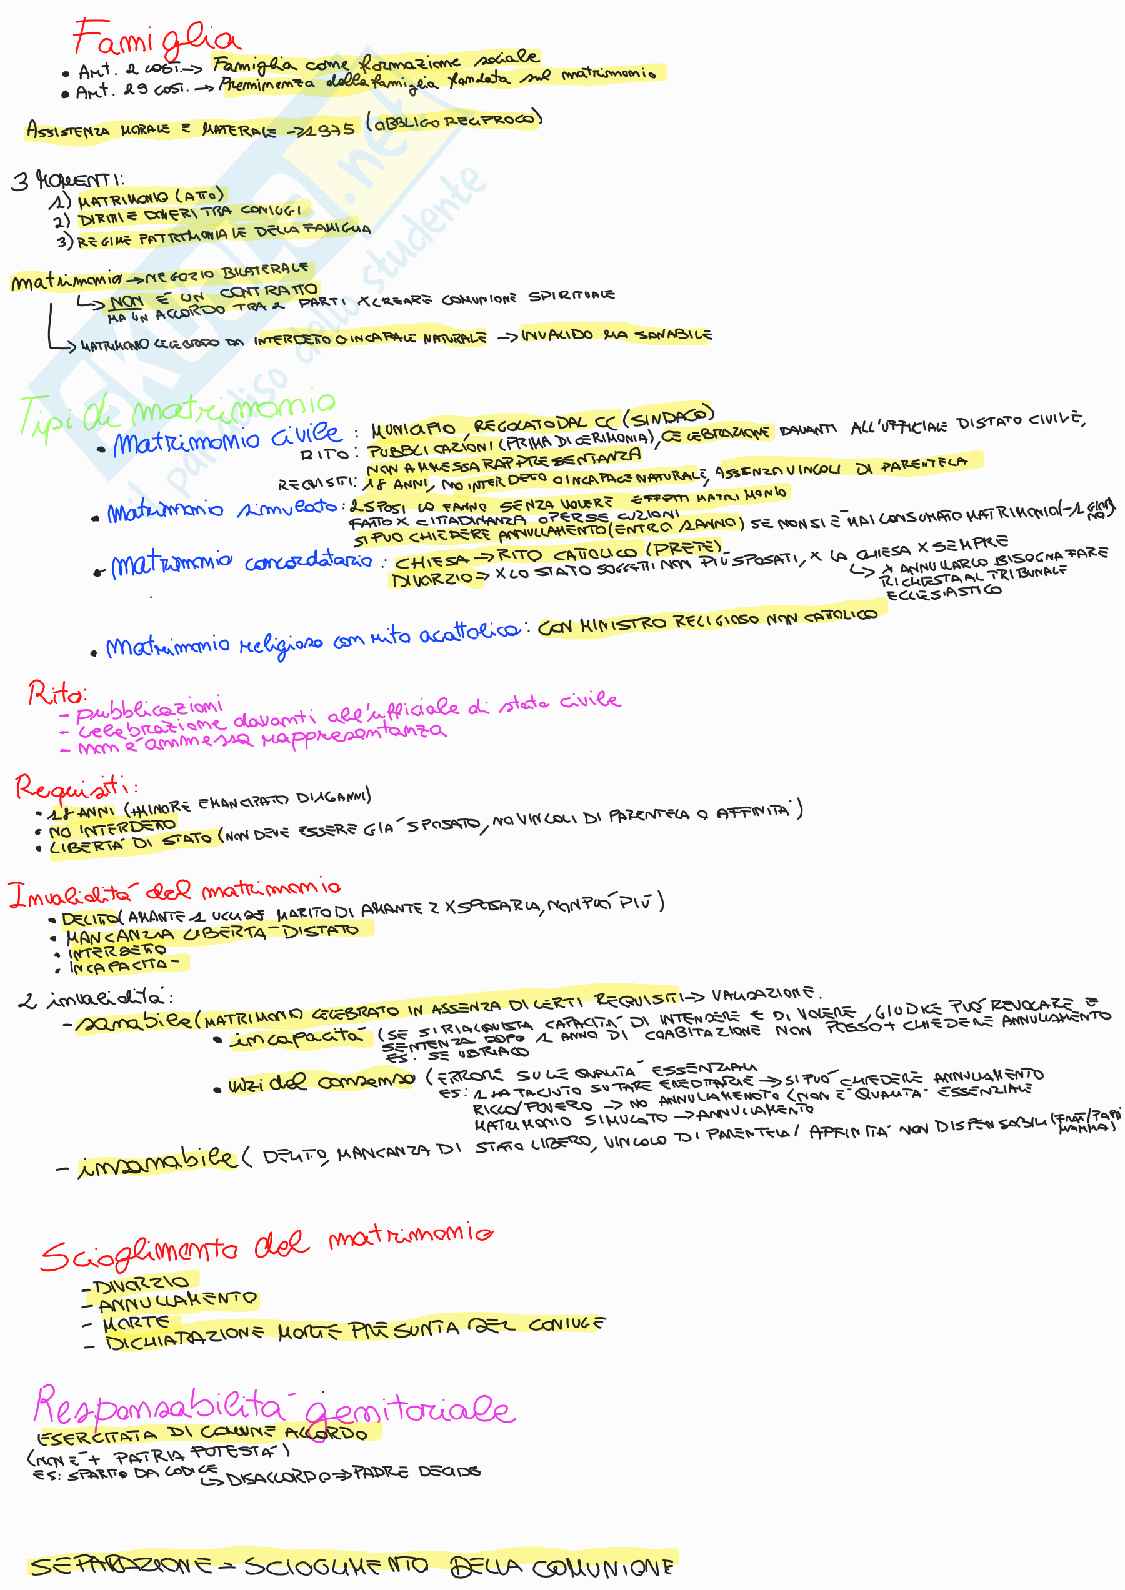 Famiglia
• Art. 2 cost. → Famiglia come formazione sociale
• Art. 29 cost. → Preminenza della famiglia fondata sul matrimonio
ASSISTENZA MORALE E MATERIALE → 1975 (OBBLIGO RECIPROCO)
3 MOMENTI:
1) MATRIMONIO (ATTO)
2) DIRITTI E DOVERI TRA CONIUGI
3) REGIME PATRIMONIALE DELLA FAMIGLIA
matrimonio → NEGOZIO BILATERALE
↳ NON È UN CONTRATTO
MA UN ACCORDO TRA 2 PARTI X CREARE COMUNIONE SPIRITUALE
↳ MATRIMONIO CELEBRATO DA INTERDETTO O INCAPACE NATURALE → INVALIDO MA SANABILE
Tipi di matrimonio
• Matrimonio civile: MUNICIPIO, REGOLATO DAL CC (SINDACO)
RITO: PUBBLICAZIONI (PRIMA DI CERIMONIA), CELEBRAZIONE DAVANTI ALL'UFFICIALE DI STATO CIVILE,
NON AMMESSA RAPPRESENTANZA
REQUISITI: 18 ANNI, NO INTERDETTO O INCAPACE NATURALE, ASSENZA VINCOLI DI PARENTELA
• Matrimonio simulato: 2 SPOSI LO FANNO SENZA VOLERE EFFETTI MATRIMONIO
FATTO X CITTADINANZA O PERSECUZIONI
SI PUÒ CHIEDERE ANNULLAMENTO (ENTRO 1 ANNO) SE NON SI È MAI CONSUMATO MATRIMONIO (-1 GIORNO)
• Matrimonio concordatario: CHIESA → RITO CATTOLICO (PRETE)
DIVORZIO => X LO STATO SOGGETTI NON PIÙ SPOSATI, X LA CHIESA X SEMPRE
↳ X ANNULLARLO BISOGNA FARE
RICHIESTA AL TRIBUNALE
ECCLESIASTICO
• Matrimonio religioso con rito acattolico: CON MINISTRO RELIGIOSO NON CATTOLICO
Rito:
- pubblicazioni
- celebrazione davanti all'ufficiale di stato civile
- non è ammessa rappresentanza
Requisiti:
• 18 ANNI (MINORE EMANCIPATO DI 16 ANNI)
• NO INTERDETTO
• LIBERTÀ DI STATO (NON DEVE ESSERE GIÀ SPOSATO, NO VINCOLI DI PARENTELA O AFFINITÀ)
Invalidità del matrimonio
• DELITTO (AMANTE 1 UCCIDE MARITO DI AMANTE 2 X SPOSARLA, NON PUÒ PIÙ)
• MANCANZA LIBERTÀ DI STATO
• INTERDETTO
• INCAPACITÀ
2 invalidità:
- sanabile (MATRIMONIO CELEBRATO IN ASSENZA DI CERTI REQUISITI → VALIDAZIONE.
• incapacità (SE SI RIACQUISTA CAPACITÀ DI INTENDERE E DI VOLERE, GIUDICE PUÒ REVOCARE E
SENTENZA DOPO 1 ANNO DI COABITAZIONE NON POSSO + CHIEDERE ANNULLAMENTO
ES: SE UBRIACO
• vizi del consenso (ERRORE SULLE QUALITÀ ESSENZIALI
ES: 1 HA TACIUTO SU TARE EREDITARIE → SI PUÒ CHIEDERE ANNULLAMENTO
RICCO/POVERO → NO ANNULLAMENTO (NON È QUALITÀ ESSENZIALE
MATRIMONIO SIMULATO → ANNULLAMENTO
- insanabile (DELITTO, MANCANZA DI STATO LIBERO, VINCOLO DI PARENTELA/AFFINITÀ NON DISPENSABILI (FRAT/PAPÀ MAMMA)
Scioglimento del matrimonio
- DIVORZIO
- ANNULLAMENTO
- MORTE
- DICHIARAZIONE MORTE PRESUNTA DEL CONIUGE
Responsabilità genitoriale
ESERCITATA DI COMUNE ACCORDO
(NON È + PATRIA POTESTÀ)
ES: SPARITO DA CODICE
↳ DISACCORDO => PADRE DECIDE
SEPARAZIONE → SCIOGLIMENTO DELLA COMUNIONE
skuola.net
il paradiso dello studente